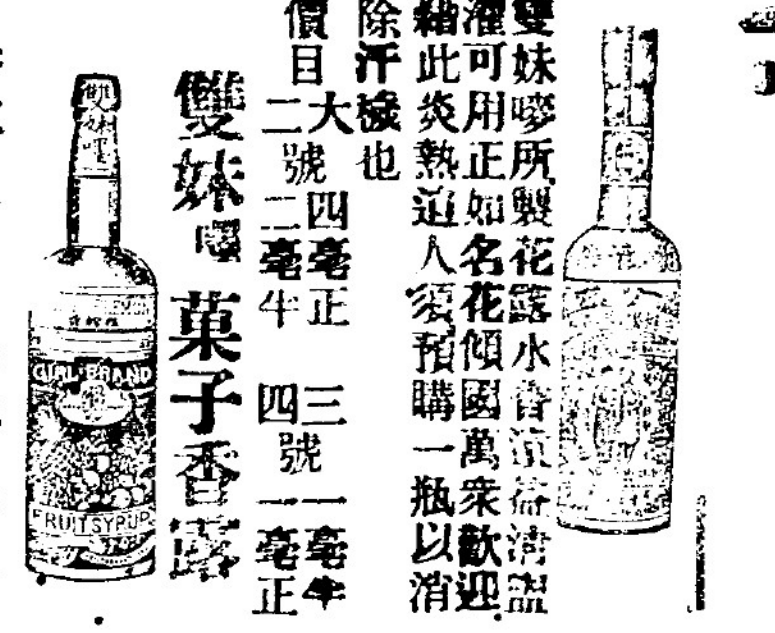 雙妹嘜所製花露水香益清盥
濯可用正如名花傾國萬衆歡迎
此炎熱逈人須預購一瓶以消
除汗穢也
價目
大號四毫正 三號一毫半
二號二毫半 四號一毫正
雙妹嘜菓子香露
雙妹嘜
GIRL BRAND
FRUIT SYRUP